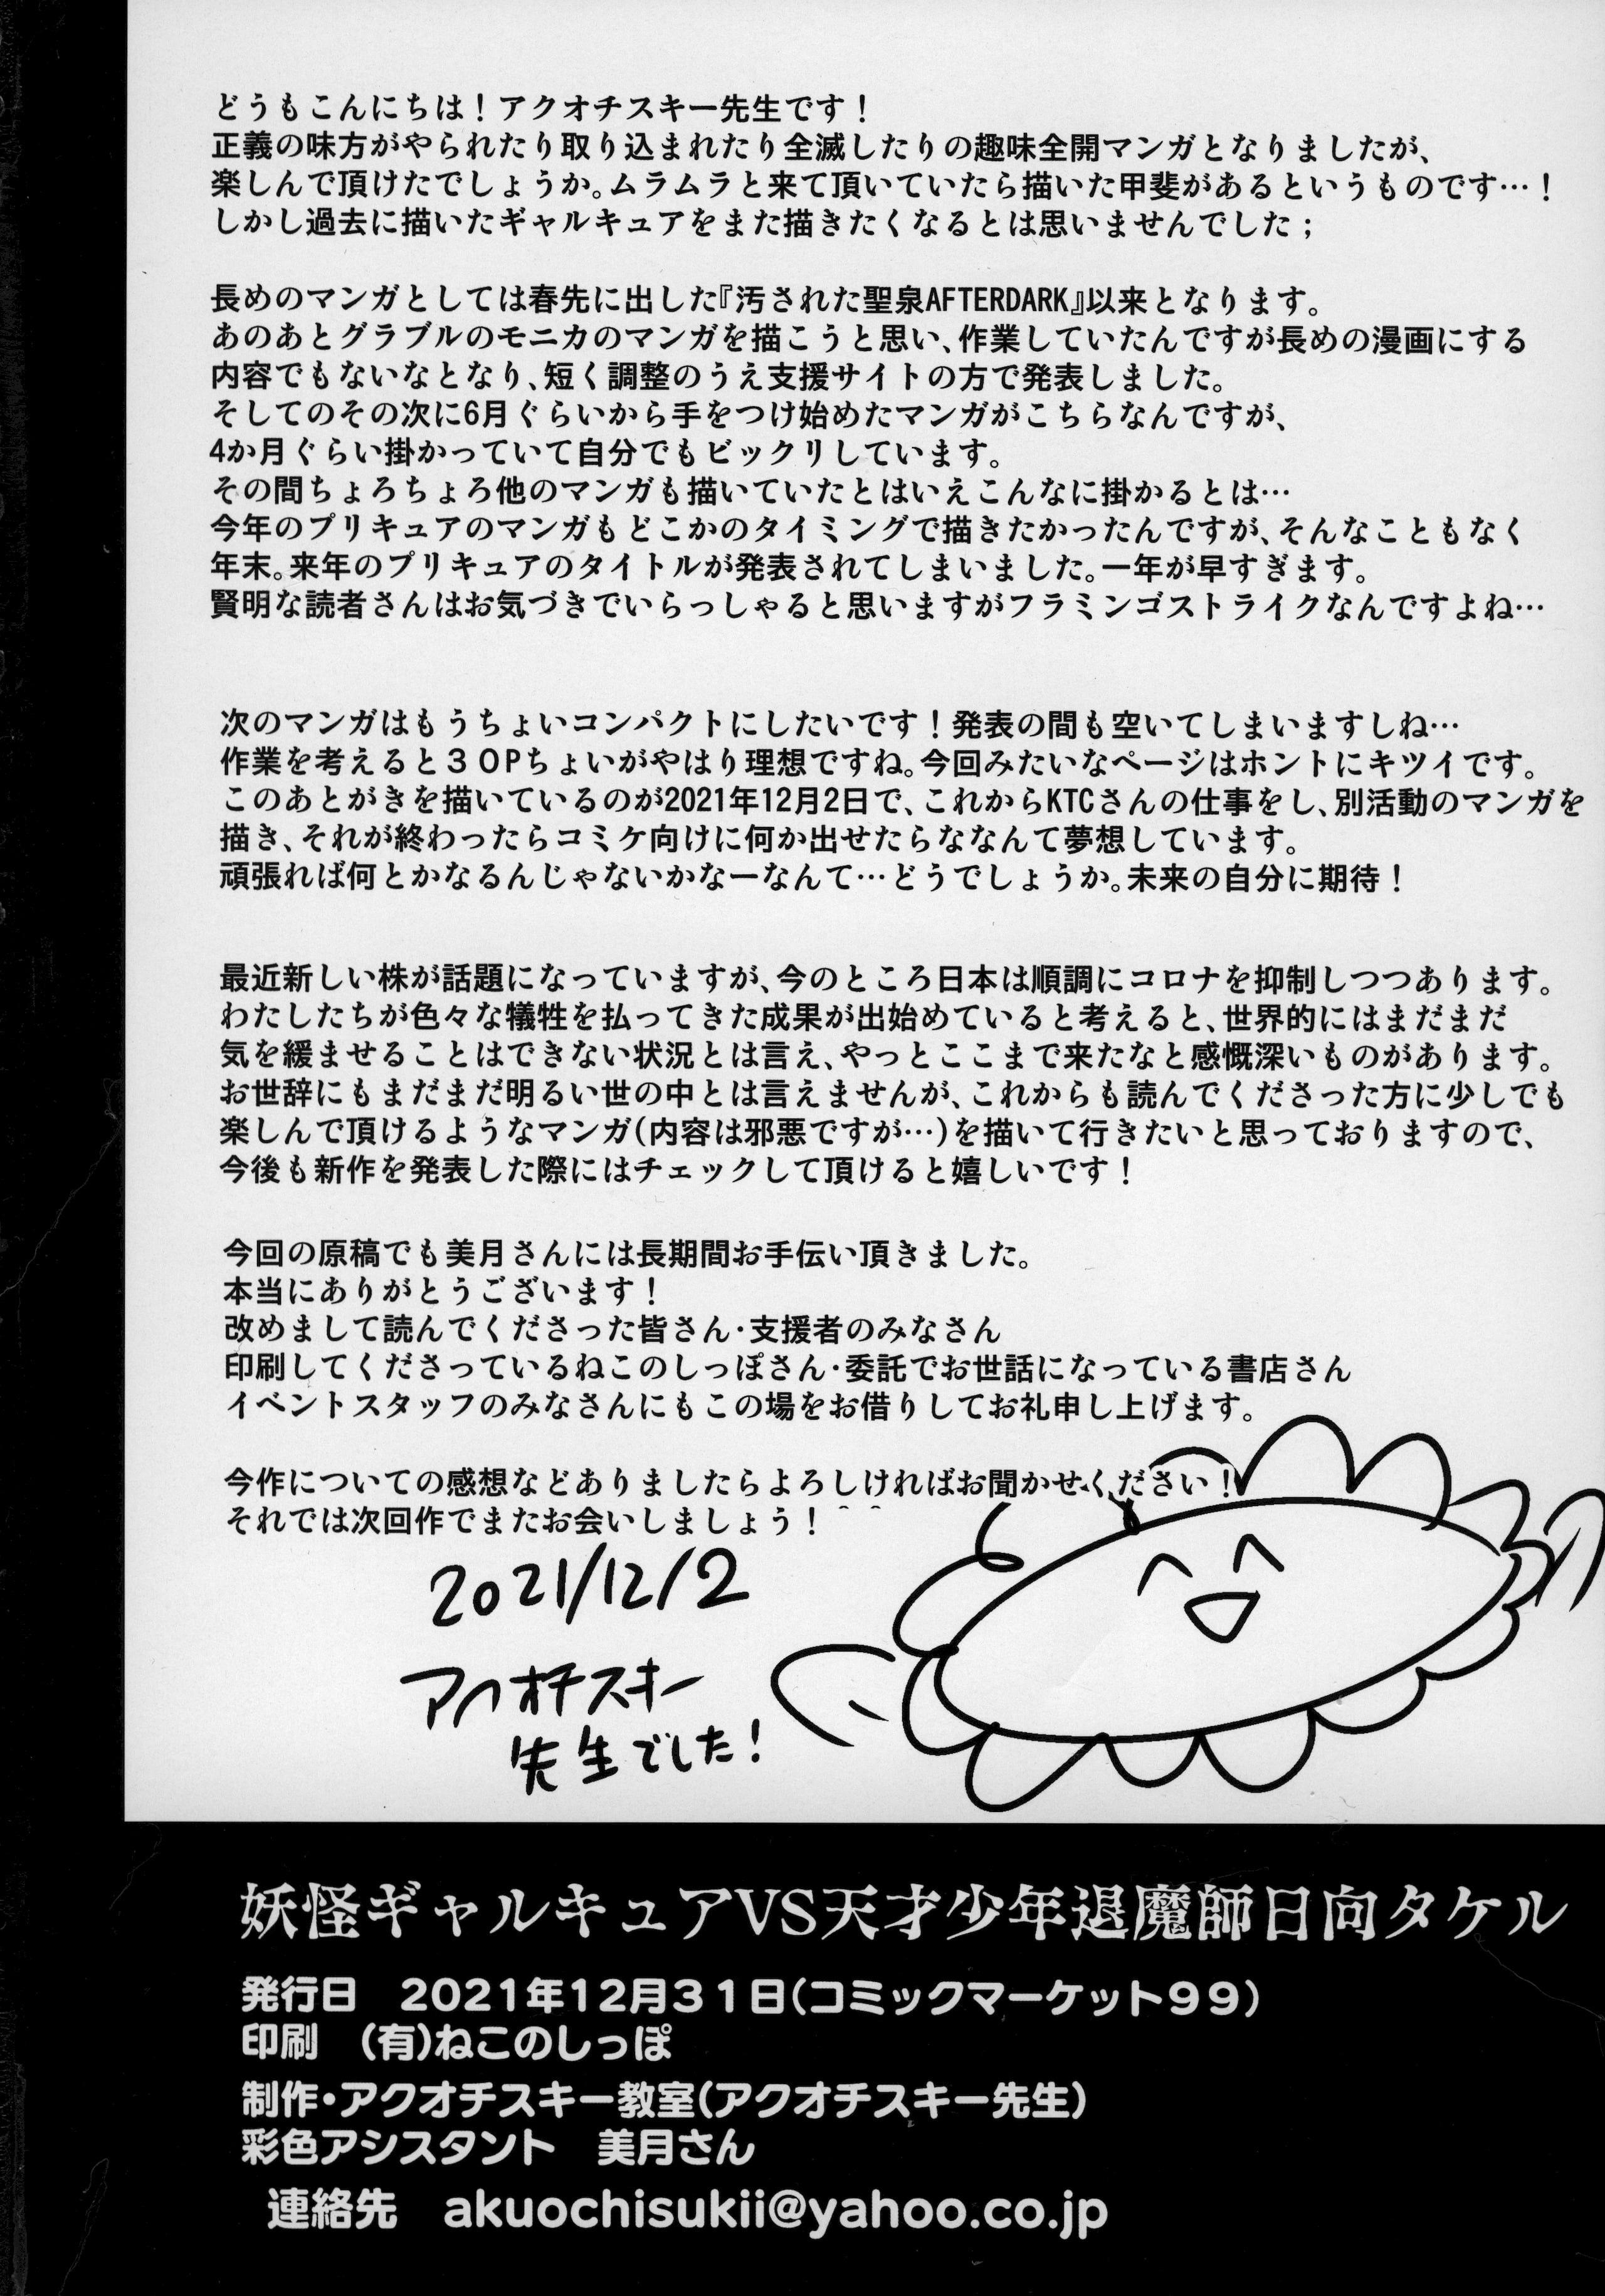 どうもこんにちは！アクオチスキー先生です！
正義の味方がやられたり取り込まれたり全滅したりの趣味全開マンガとなりましたが、
楽しんで頂けたでしょうか。ムラムラと来て頂いていたら描いた甲斐があるというものです…！
しかし過去に描いたギャルキュアをまた描きたくなるとは思いませんでした；
長めのマンガとしては春先に出した『汚された聖泉AFTERDARK』以来となります。
あのあとグラブルのモニカのマンガを描こうと思い、作業していたんですが長めの漫画にする
内容でもないなとなり、短く調整のうえ支援サイトの方で発表しました。
そしてのその次に6月ぐらいから手をつけ始めたマンガがこちらなんですが、
4か月ぐらい掛かっていて自分でもビックリしています。
その間ちょろちょろ他のマンガも描いていたとはいえこんなに掛かるとは…
今年のプリキュアのマンガもどこかのタイミングで描きたかったんですが、そんなこともなく
年末。来年のプリキュアのタイトルが発表されてしまいました。一年が早すぎます。
賢明な読者さんはお気づきでいらっしゃると思いますがフラミンゴストライクなんですよね…
次のマンガはもうちょいコンパクトにしたいです！発表の間も空いてしまいますしね…
作業を考えると３０Pちょいがやはり理想ですね。今回みたいなページはホントにキツイです。
このあとがきを描いているのが2021年12月2日で、これからKTCさんの仕事をし、別活動のマンガを
描き、それが終わったらコミケ向けに何か出せたらななんて夢想しています。
頑張れば何とかなるんじゃないかなーなんて…どうでしょうか。未来の自分に期待！
最近新しい株が話題になっていますが、今のところ日本は順調にコロナを抑制しつつあります。
わたしたちが色々な犠牲を払ってきた成果が出始めていると考えると、世界的にはまだまだ
気を緩ませることはできない状況とは言え、やっとここまで来たなと感慨深いものがあります。
お世辞にもまだまだ明るい世の中とは言えませんが、これからも読んでくださった方に少しでも
楽しんで頂けるようなマンガ(内容は邪悪ですが…)を描いて行きたいと思っておりますので、
今後も新作を発表した際にはチェックして頂けると嬉しいです！
今回の原稿でも美月さんには長期間お手伝い頂きました。
本当にありがとうございます！
改めまして読んでくださった皆さん・支援者のみなさん
印刷してくださっているねこのしっぽさん・委託でお世話になっている書店さん
イベントスタッフのみなさんにもこの場をお借りしてお礼申し上げます。
今作についての感想などありましたらよろしければお聞かせください！
それでは次回作でまたお会いしましょう！＾＾
2021/12/2
アクオチスキー
先生でした！
妖怪ギャルキュアVS天才少年退魔師日向タケル
発行日　2021年12月31日(コミックマーケット99)
印刷　(有)ねこのしっぽ
制作・アクオチスキー教室(アクオチスキー先生)
彩色アシスタント　美月さん
連絡先　akuochisukii@yahoo.co.jp